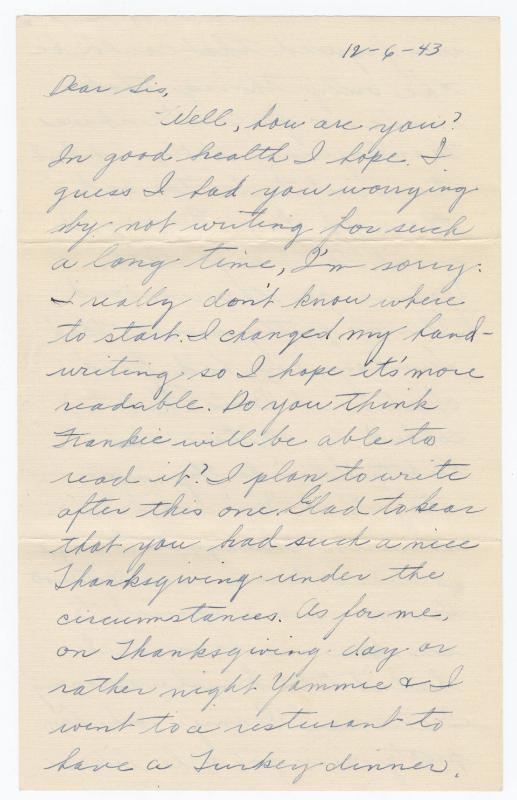 12-6-43
Dear Sis,
Well, how are you?
In good health I hope. I
guess I had you worrying
by not writing for such
a long time, I'm sorry.
I really don't know where
to start. I changed my hand-
writing so I hope it's more
readable. Do you think
Frankie will be able to
read it? I plan to write
after this one. Glad to hear
that you had such a nice
Thanksgiving under the
circumstances. As for me,
on Thanksgiving day or
rather night Yammie & I
went to a resturant to
have a Turkey dinner.